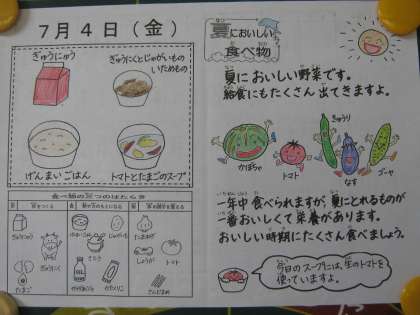 7月4日(金)
ぎゅうにゅう
ぎゅうにくとじゃがいもの
いためもの
げんまいごはん
トマトとたまごのスープ
食べ物の三つのはたらき
ぎゅうにゅう
ぎゅうにく
たまご
じゃがいも
さとう
たまねぎ
しょうが
トマト
夏においしい
食べ物
夏においしい野菜です。
給食にもたくさん出てきますよ。
かぼちゃ
トマト
きゅうり
なす
ゴーヤ
一年中食べられますが、夏にとれるものが
一番おいしくて栄養があります。
おいしい時期にたくさん食べましょう。
今日のスープには、生のトマトを
使っていますよ。